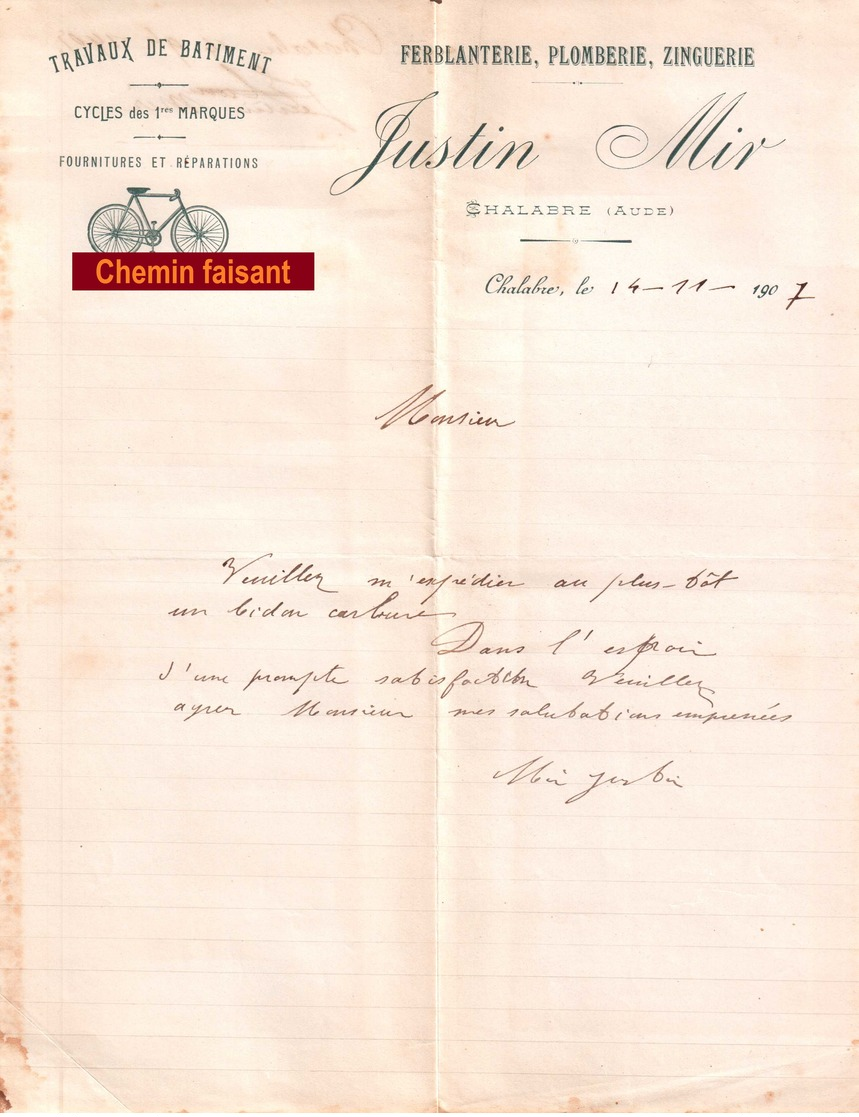 TRAVAUX DE BATIMENT
CYCLES des 1res MARQUES
FOURNITURES ET RÉPARATIONS
Chemin faisant
FERBLANTERIE, PLOMBERIE, ZINGUERIE
Justin Mir
CHALABRE (AUDE)
Chalabre, le 14 - 11 - 1907
Monsieur
Veuillez m'expédier au plus-tôt
un bidon carbure
Dans l'espoir
d'une prompte satisfaction Veuillez
agrer Monsieur mes salutations empressées
Mir Justin